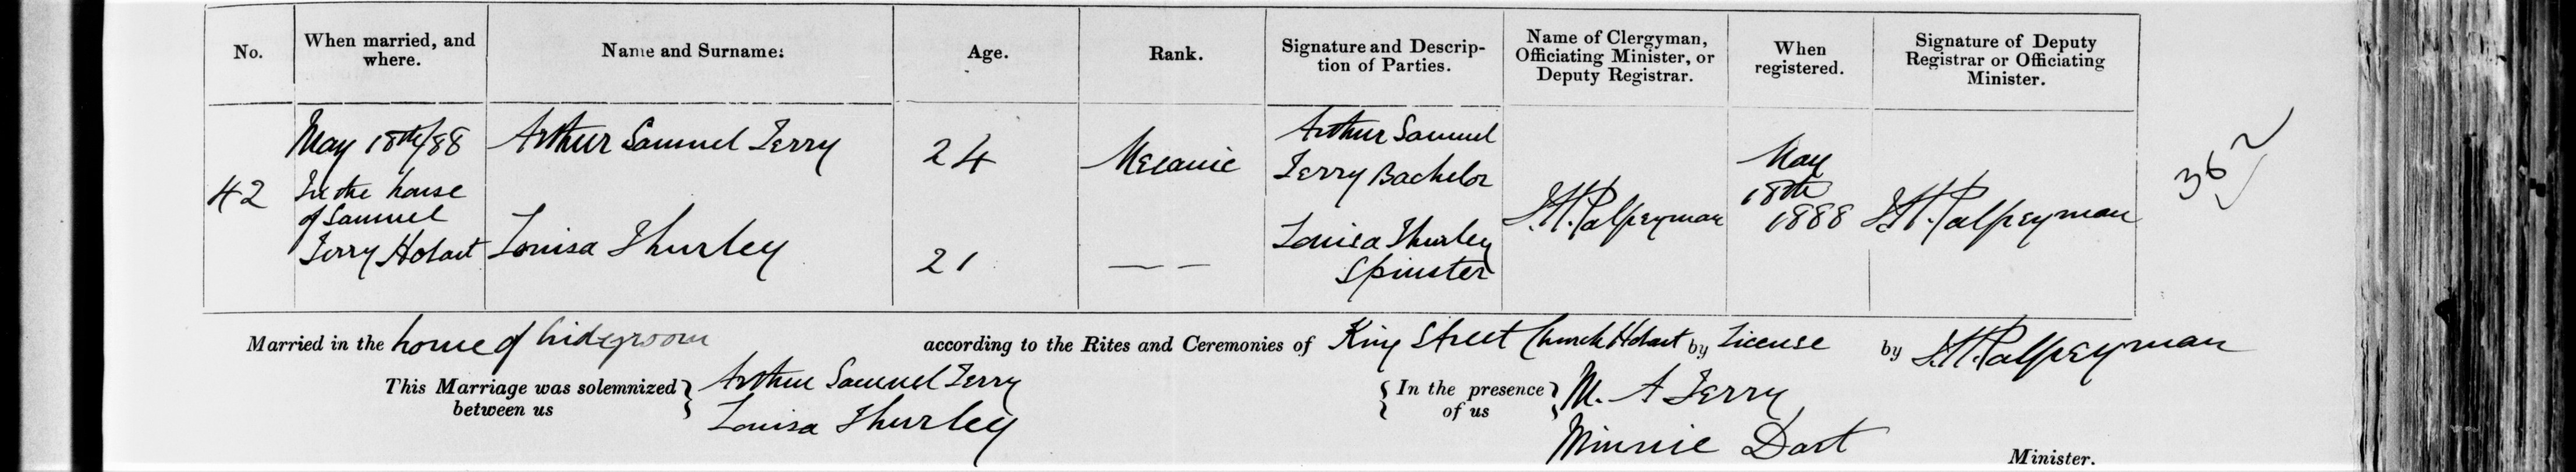 No.
When married, and
where.
Name and Surname:
Age.
Rank.
Signature and Descrip-
tion of Parties.
Name of Clergyman,
Officiating Minister, or
Deputy Registrar.
When
registered.
Signature of Deputy
Registrar or Officiating
Minister.
42
May 18th/88
In the house
of Samuel
Terry Hobart
Arthur Samuel Terry
24
Mecanic
Arthur Samuel
Terry Bachelor
Louisa Thurley
21
— —
Louisa Thurley
Spinster
J.H. Palfreyman
May
18th
1888
J.H. Palfreyman
362
Married in the home of bridegroom according to the Rites and Ceremonies of King Street Church Hobart by License by J.H. Palfreyman
This Marriage was solemnized
between us
Arthur Samuel Terry
Louisa Thurley
In the presence
of us
M. A Terry
Minnie Dart
Minister.